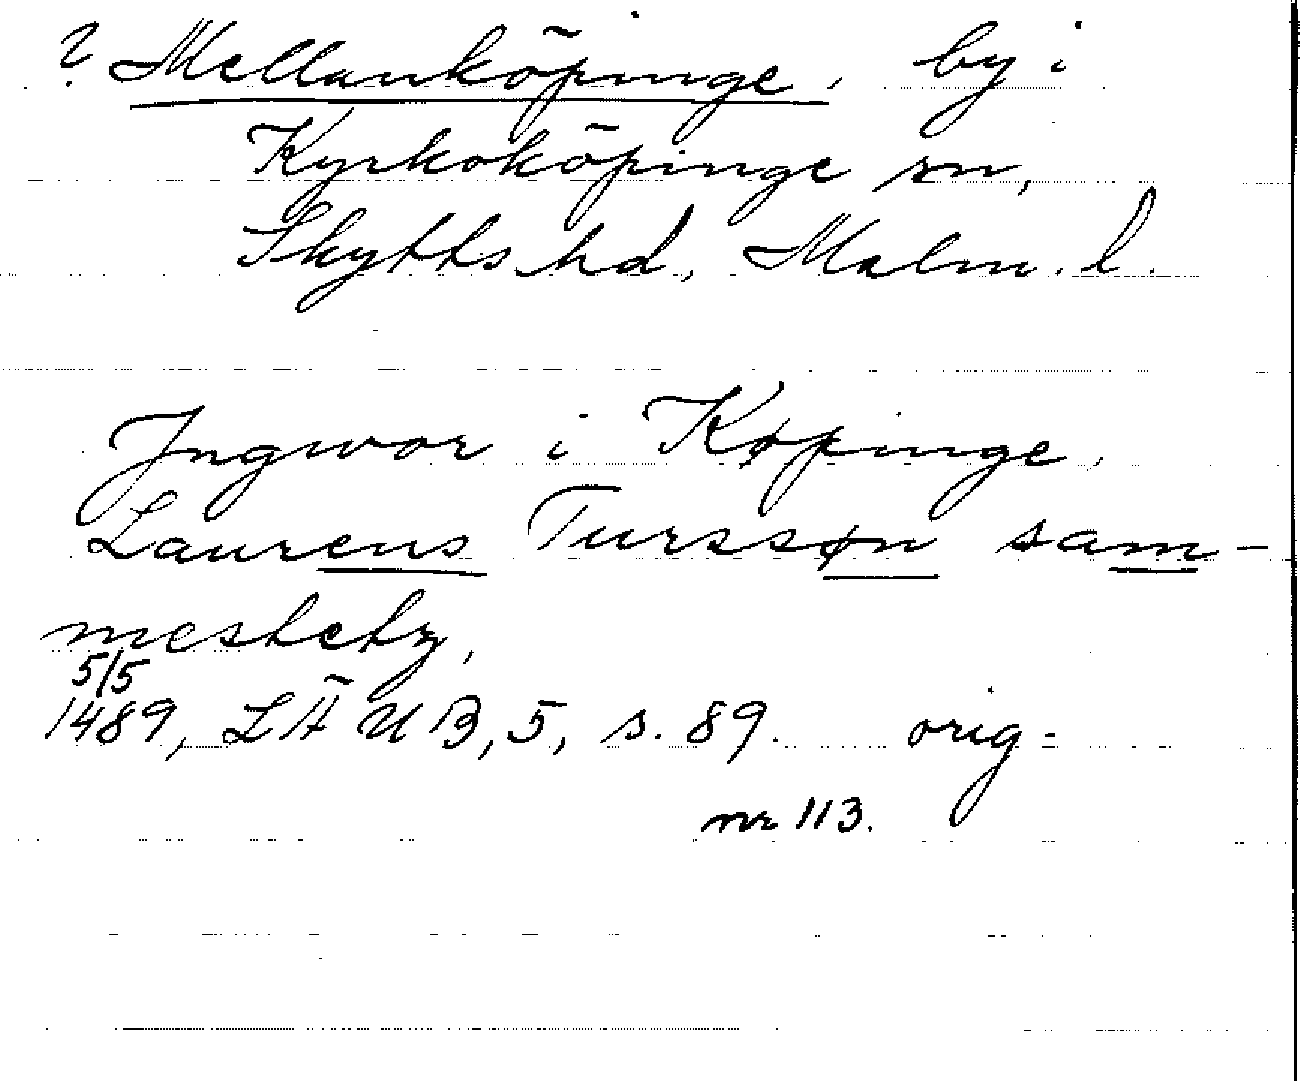 ? Mellanköpinge, by i
Kyrkoköpinge sn,
Skytts hd, Malm. l.
Jngwor i Køpinge,
Laurens Turssøn sam-
mestetz,
5/5
1489, LÄUB, 5, s. 89. orig.
nr 113.